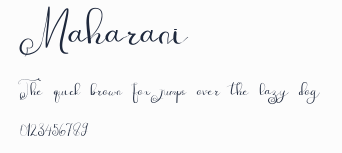 Maharani
The quick brown fox jumps over the lazy dog
0123456789